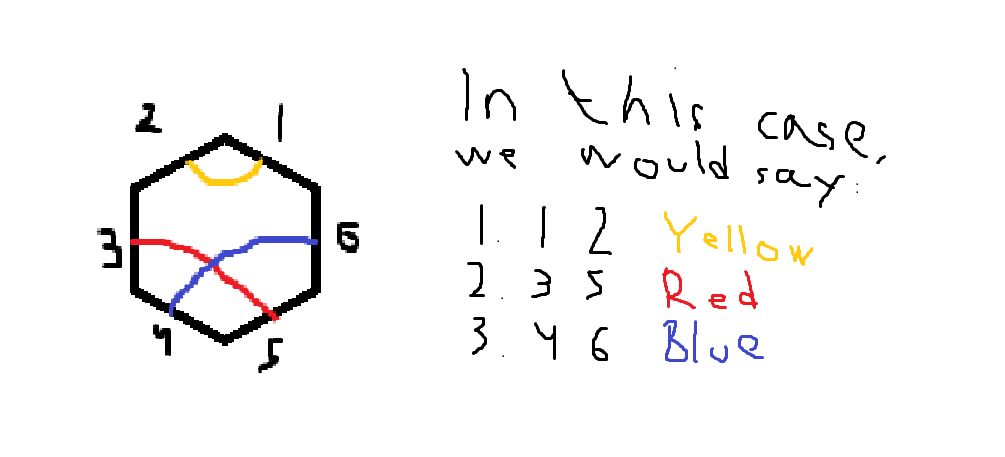 2 1
3 6
4 5
In this case,
we would say:
1. 1 2 Yellow
2. 3 5 Red
3. 4 6 Blue